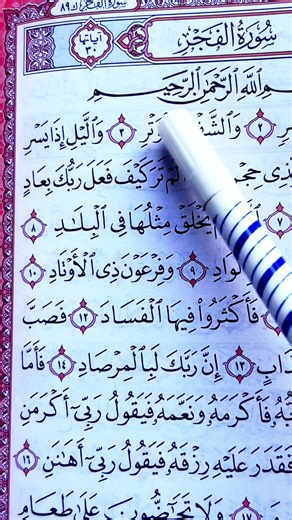 سورة الفجر ٨٩
سُورَةُ الْفَجْرِ
آيَاتُهَا ٣٠
اللَّهِ الرَّحْمَٰنِ الرَّحِيمِ
٢ وَالشَّفْعِ ٣ وَالَّيْلِ إِذَا يَسْرِ
حِجْرٍ تَرَ كَيْفَ فَعَلَ رَبُّكَ بِعَادٍ
٧ يُخْلَقْ مِثْلُهَا فِي الْبِلَادِ ٨
٩ وَفِرْعَوْنَ ذِي الْأَوْتَادِ ١٠
فَأَكْثَرُوا فِيهَا الْفَسَادَ ١٢ فَصَبَّ
١٣ إِنَّ رَبَّكَ لَبِالْمِرْصَادِ ١٤ فَأَمَّا
فَأَكْرَمَهُ وَنَعَّمَهُ فَيَقُولُ رَبِّي أَكْرَمَنِ
فَقَدَرَ عَلَيْهِ رِزْقَهُ فَيَقُولُ رَبِّي أَهَانَنِ ١٦
١٧ وَلَا تَحَاضُّونَ عَلَىٰ طَعَامِ